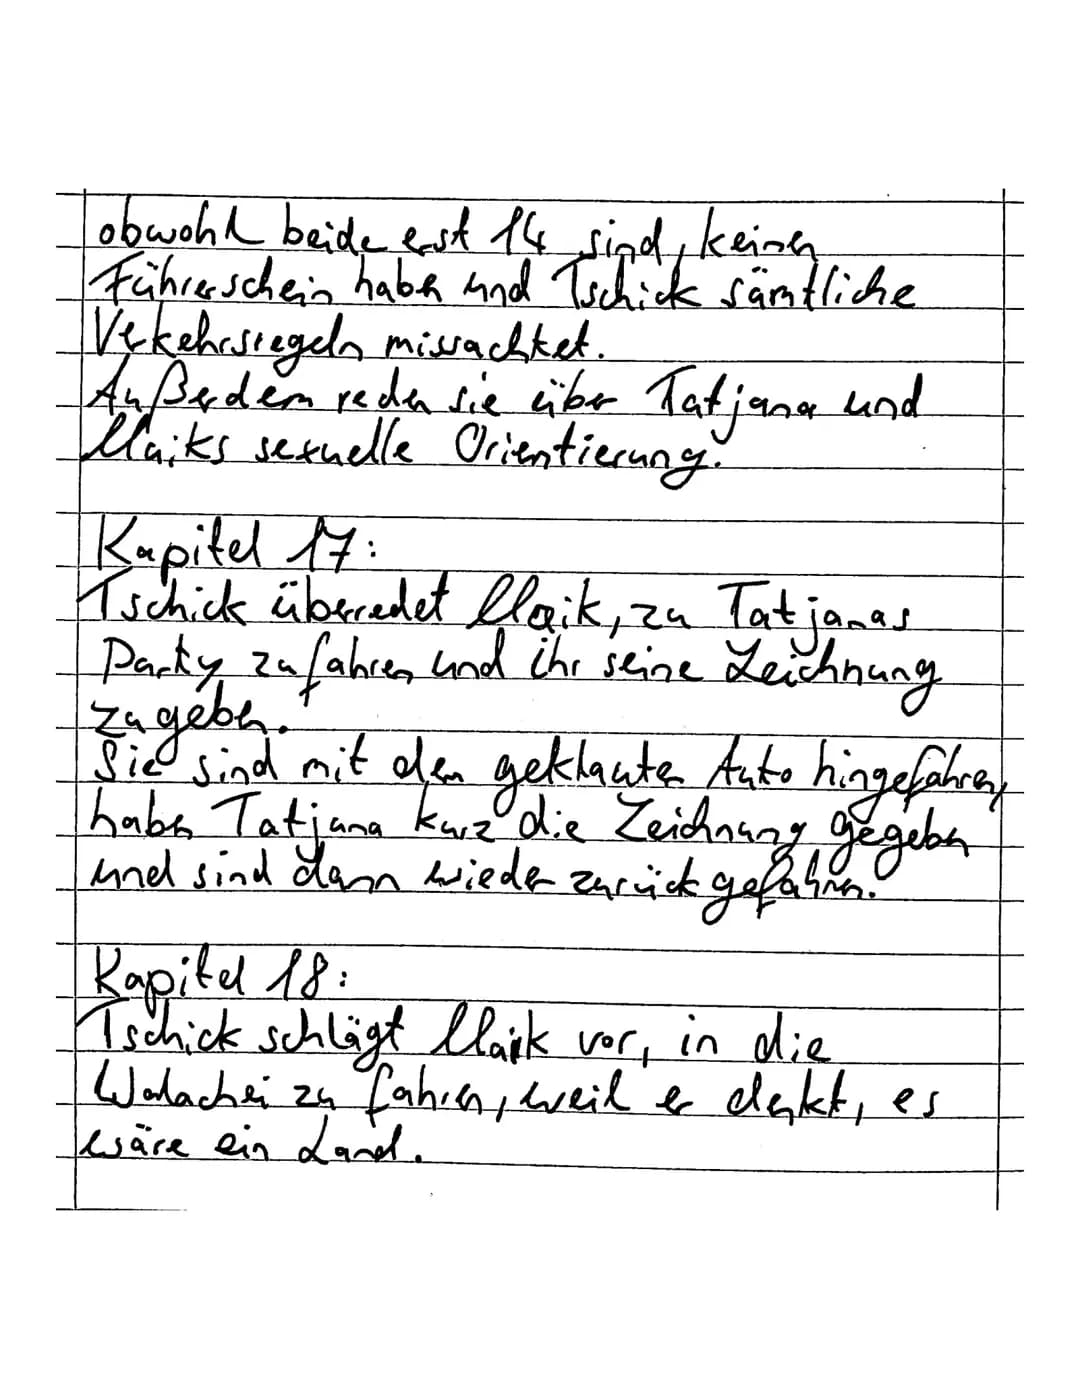 obwohl beide erst 14 sind, keinen
Führerschein haben und Tschick sämtliche
Verkehrsregeln missachtet.
Außerdem reden sie über Tatjana und
Maiks sexuelle Orientierung.
Kapitel 17:
Tschick überredet Maik, zu Tatjanas
Party zu fahren und ihr seine Zeichnung
zu geben.
Sie sind mit dem geklauten Auto hingefahren,
haben Tatjana kurz die Zeichnung gegeben
und sind dann wieder zurück gefahren.
Kapitel 18:
Tschick schlägt Maik vor, in die
Walachei zu fahren, weil er denkt, es
wäre ein Land.